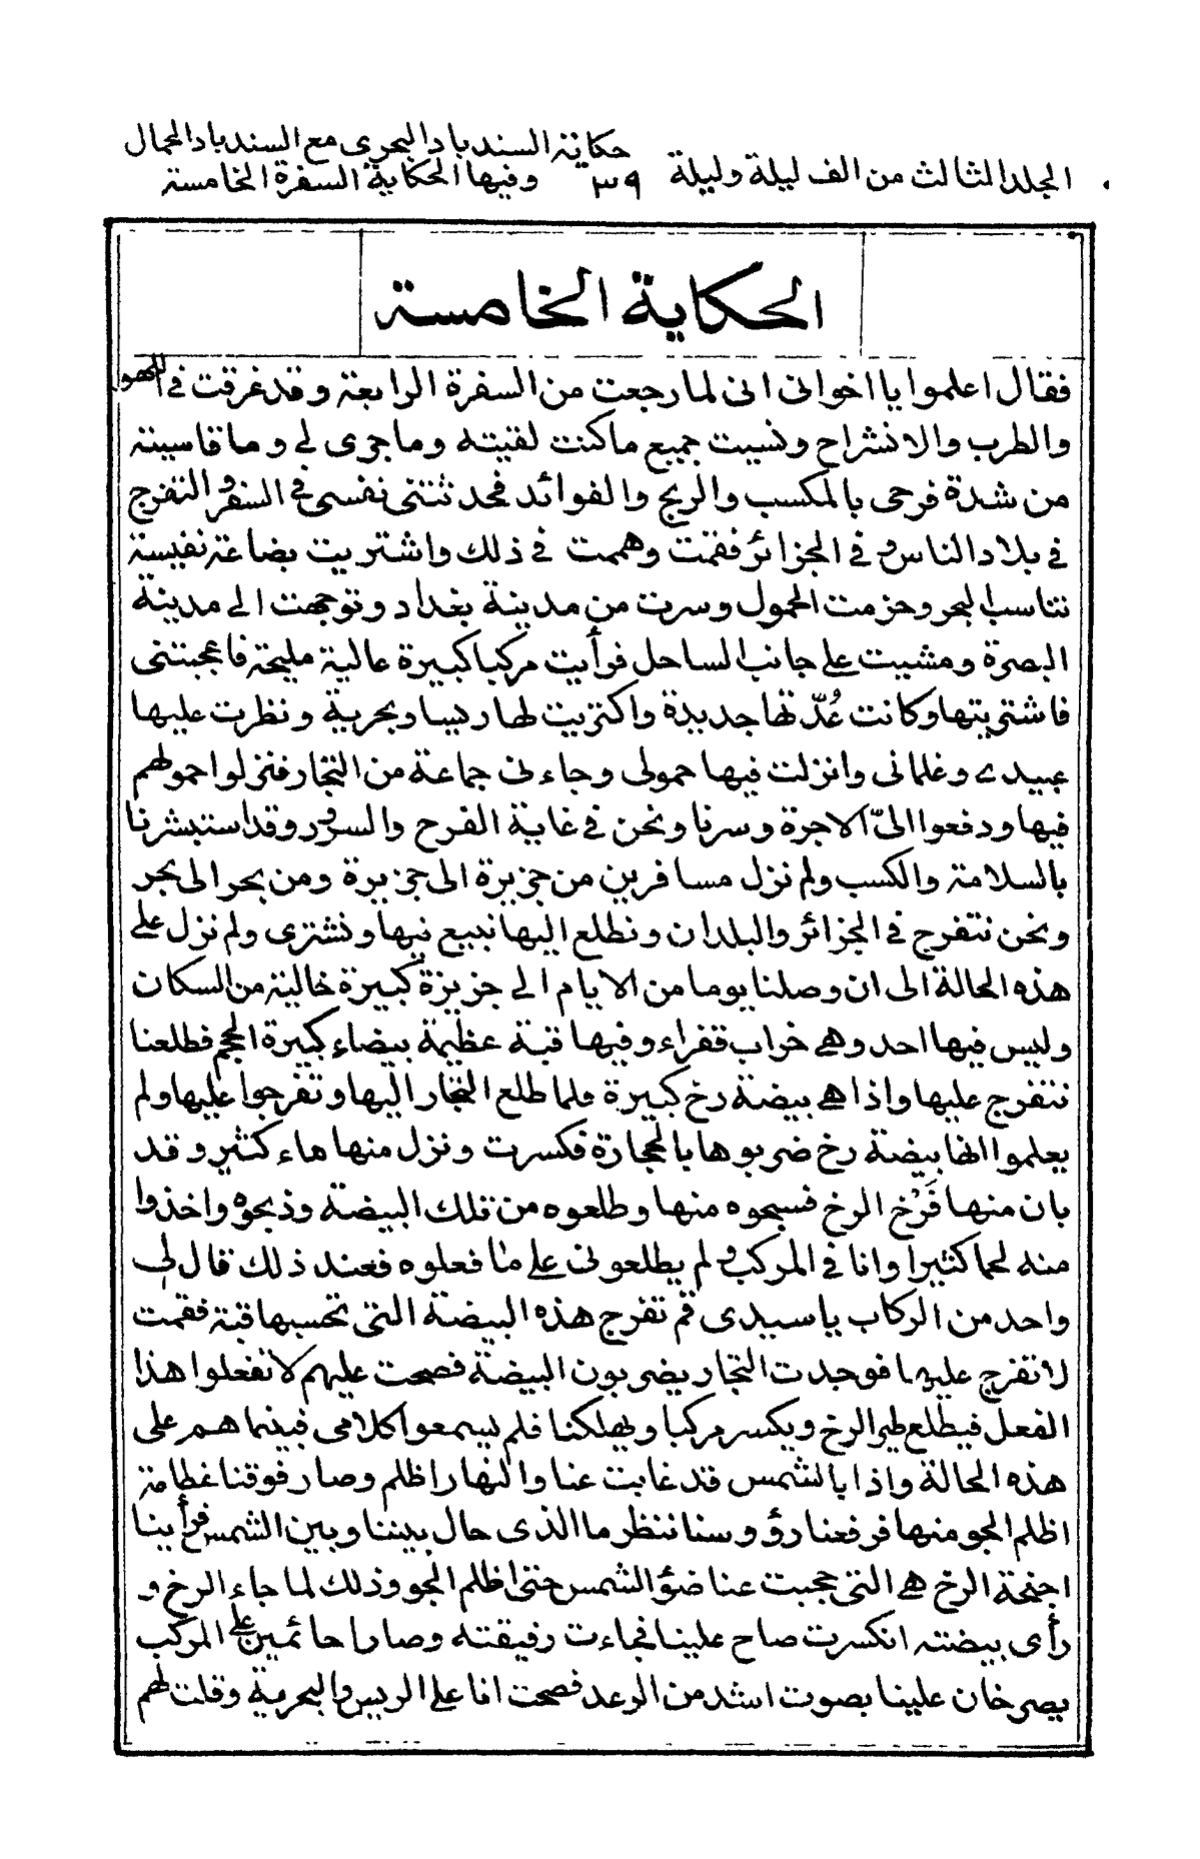 حكاية السندباد البحرى مع السندباد الحمال
المجلد الثالث من الف ليلة وليلة ٣٩ وفيها الحكاية السفرة الخامسة
الحكاية الخامسة
فقال اعلموا يا اخوانى انى لما رجعت من السفرة الرابعة وقد غرقت فى اللهو
والطرب والانشراح ونسيت جميع ما كنت لقيته وما جرى لى وما قاسيته
من شدة فرحى بالمكسب والربح والفوائد فحدثتنى نفسى فى السفر والتفرج
فى بلاد الناس وفى الجزائر فقمت وهممت فى ذلك واشتريت بضاعة نفيسة
تناسب البحر وحزمت الحمول وسرت من مدينة بغداد وتوجهت الى مدينة
البصرة ومشيت على جانب الساحل فرأيت مركبا كبيرة عالية مليحة فاعجبتنى
فاشتريتها وكانت عُدّتها جديدة واكتريت لها ريسا وبحرية ونظرت عليها
عبيدى وغلمانى وانزلت فيها حمولى وجاءنى جماعة من التجار فنزلوا حمولهم
فيها ودفعوا الىّ الاجرة وسرنا ونحن فى غاية الفرح والسرور وقد استبشرنا
بالسلامة والكسب ولم نزل مسافرين من جزيرة الى جزيرة ومن بحر الى بحر
ونحن نتفرج فى الجزائر والبلدان ونطلع اليها نبيع فيها ونشترى ولم نزل على
هذه الحالة الى ان وصلنا يوما من الايام الى جزيزة كبيرة خالية من السكان
وليس فيها احد وهى خراب قفراء وفيها قبة عظيمة بيضاء كبيرة الحجم فطلعنا
نتفرج عليها واذا هى بيضة رخ كبيرة فلما طلع التجار اليها وتفرجوا عليها ولم
يعلموا انها بيضة رخ ضربوها بالحجارة فكسرت ونزل منها ماء كثير وقد
بان منها فَرْخ الرخ فسحبوه منها وطلعوه من تلك البيضة وذبحوه واخذوا
منه لحما كثيرا وانا فى المركب ولم يطلعونى على ما فعلوه فعند ذلك قال لى
واحد من الركاب يا سيدى قم تفرج هذه البيضة التى تحسبها قبة فقمت
لاتفرج عليها فوجدت التجار يضربون البيضة فصحت عليهم لا تفعلوا هذا
الفعل فيطلع طير الرخ ويكسر مركبا ويهلكنا فلم يسمعوا كلامى فبينما هم على
هذه الحالة واذا بالشمس قد غابت عنا والنهار اظلم وصار فوقنا غمامة
اظلم الجو منها فرفعنا رؤوسنا ننظر ما الذى حال بيننا وبين الشمس فرأينا
اجنحة الرخ هى التى حجبت عنا ضؤ الشمس حتى اظلم الجو وذلك لما جاء الرخ و
رأى بيضته انكسرت صاح علينا فجاءت رفيقته وصارا حائمين على المركب
يصرخان علينا بصوت اشد من الرعد فصحت انا على الريس والبحرية وقلت لهم